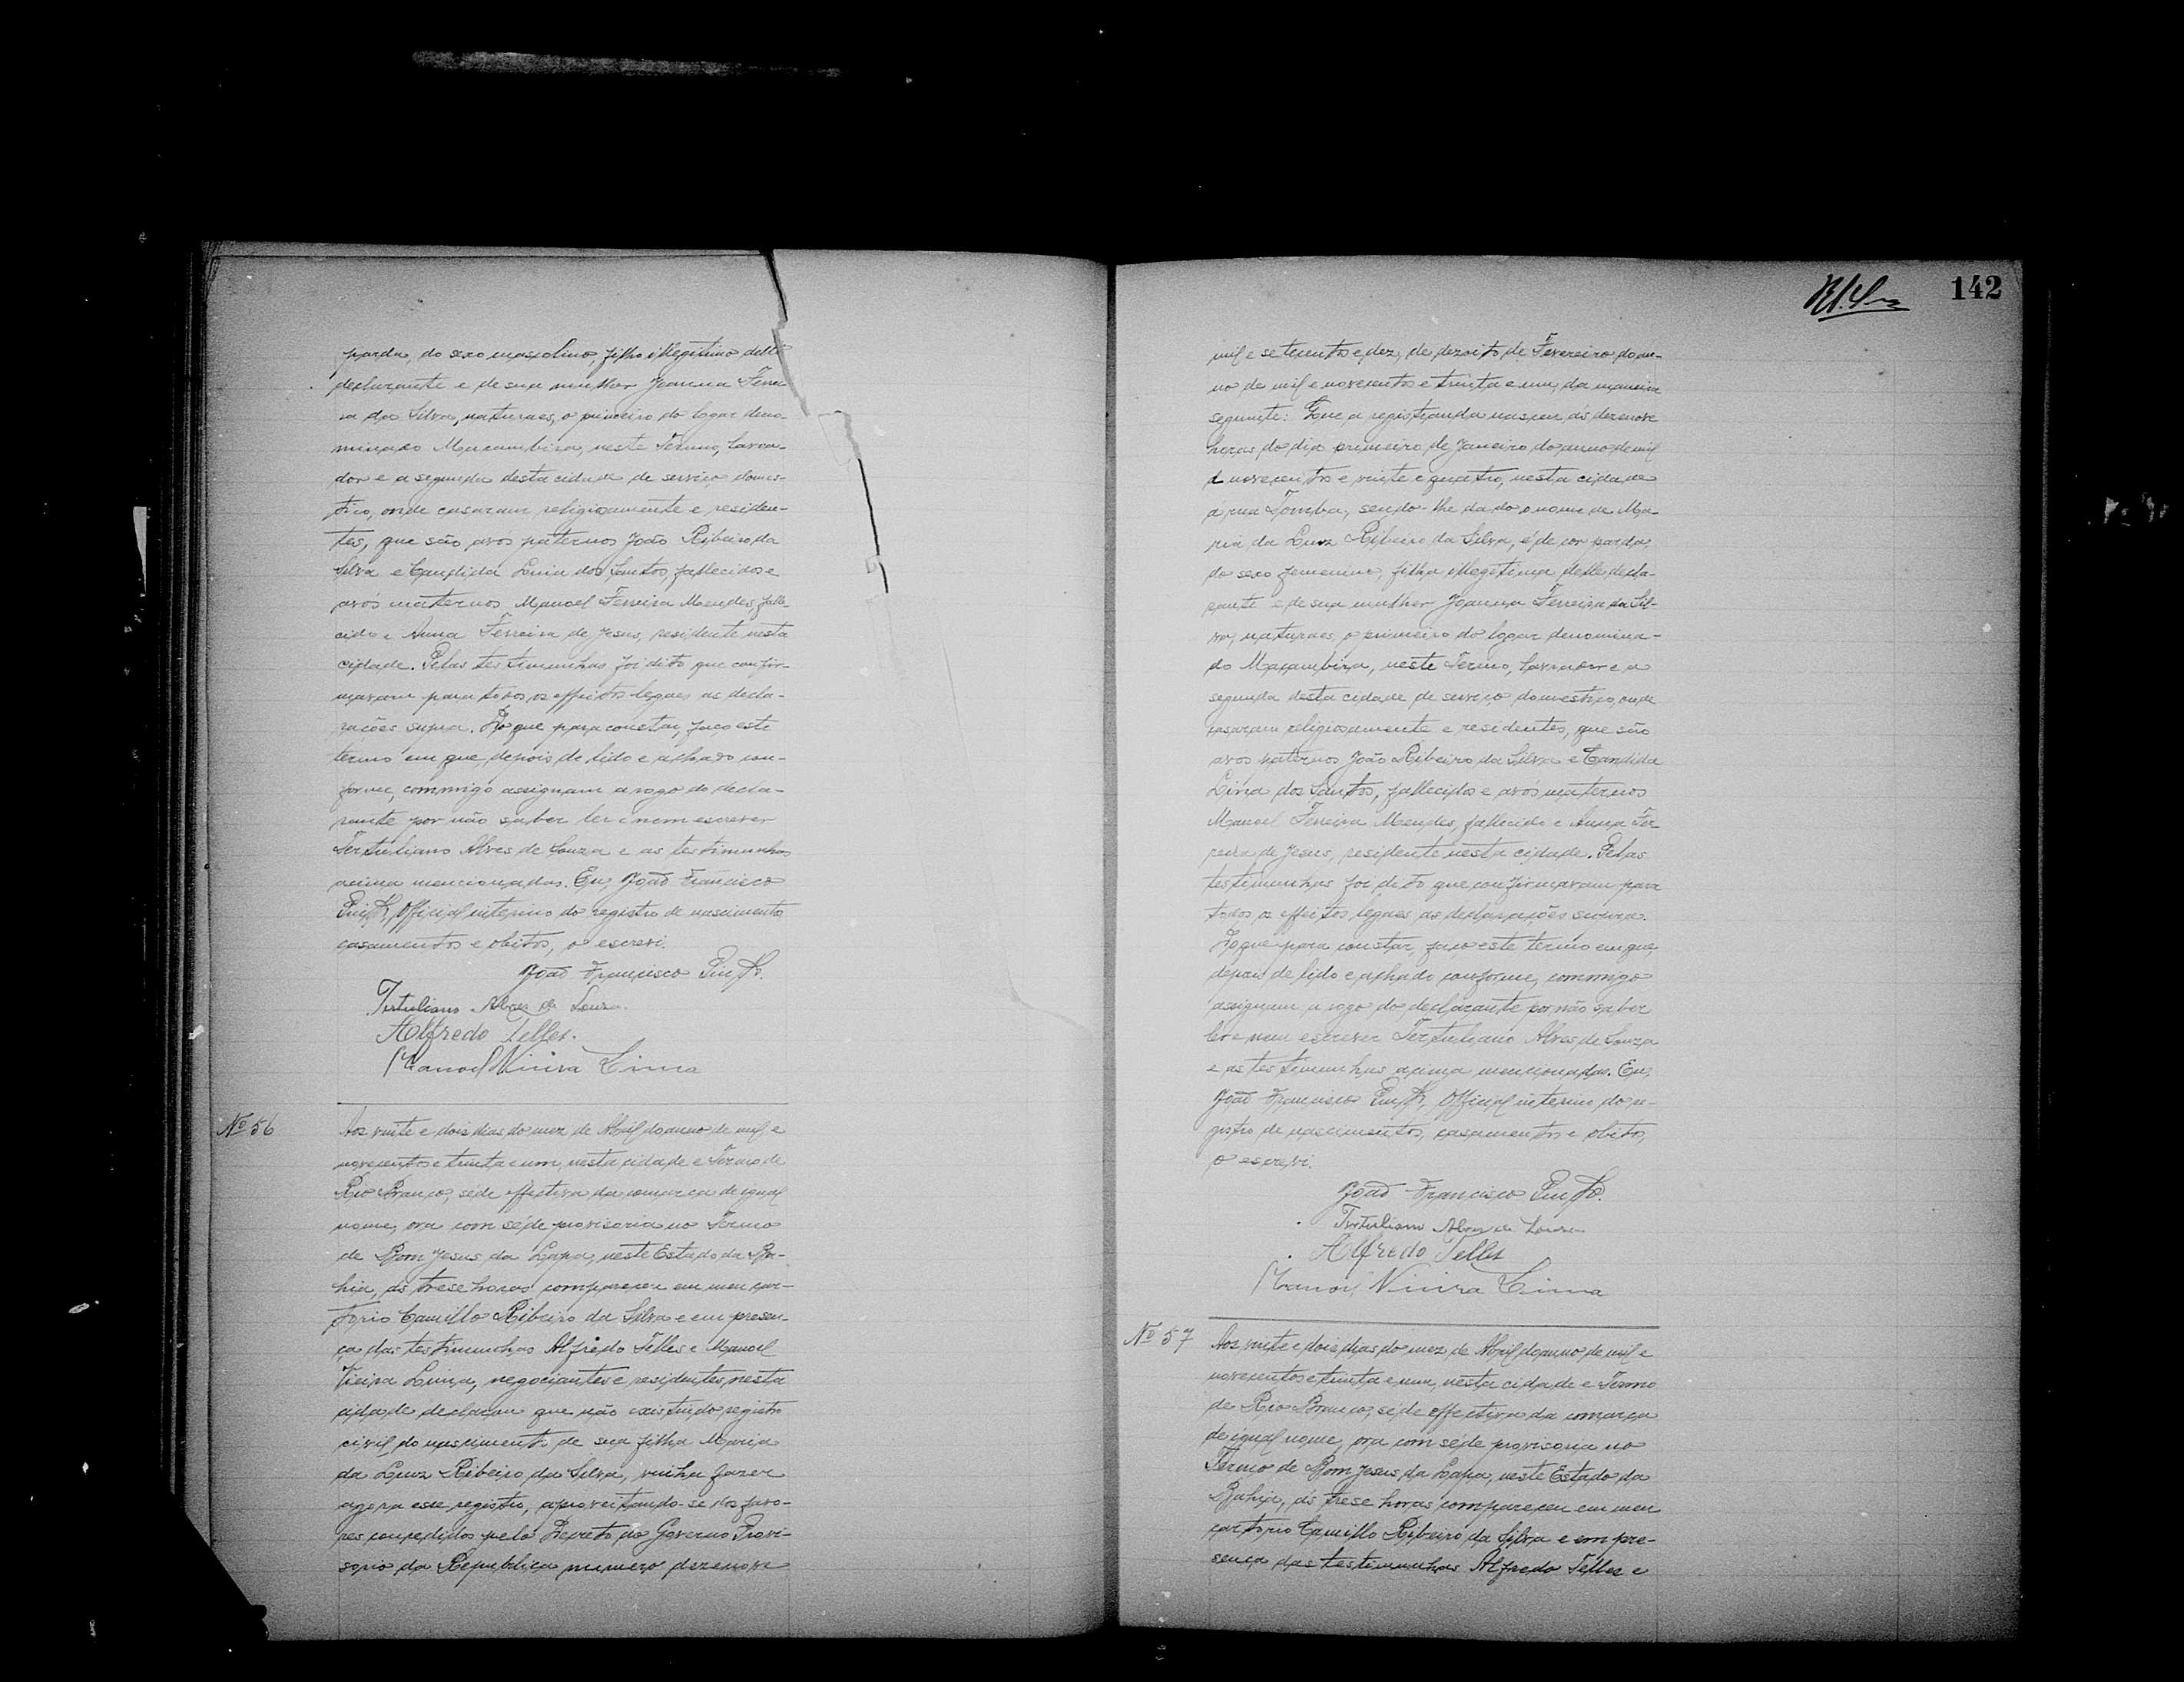 parda, do sexo mascolino, filho illegitimo delle
declarante e de sua mulher Joanna Ferrei-
ra da Silva, naturaes, o primeiro do logar deno-
minado Macambira, neste Termo, lavra-
dor e a segunda desta cidade de serviço domes-
tico, onde casaram religiosamente e residen-
tes, que são avos paternos João Ribeiro da
Silva e Candida Lina dos Santos, fallecidos e
avós maternos Manoel Ferreira Mendes, falle-
cido e Anna Ferreira de Jesus, residente nesta
cidade. Pelas testimunhas foi dito que confir-
mavam para todos os effeitos legaes as decla-
rações supra. Do que para constar, faço este
termo em que, depois de lido e achado con-
forme, commigo assignam a rogo do decla-
rante por não saber ler e nem escrever
Tertuliano Alves de Souza e as testimunhas
acima mencionadas. Eu, João Francisco
Pinto, Official interino do registro de nascimento
casamentos e obitos, o escrevi.
João Francisco Pinto.
Tertuliano Alves de Souza.
Alfredo Telles.
Manoel Vieira Lima
Nº 56
Aos vinte e dois dias do mez de Abril do anno de mil e
novecentos e trinta e um, nesta cidade e Termo de
Rio Branco, séde effectiva da comarca de igual
nome, ora com séde provisoria no Termo
de Bom Jesus da Lapa, neste Estado da Ba-
hia, ás trese horas compareceu em meu car-
torio Camillo Ribeiro da Silva e em presen-
ça das testimunhas Alfredo Telles e Manoel
Vieira Lima, negociantes e residentes nesta
cidade declarou que não existindo registro
civil do nascimento de sua filha Maria
da Luz Ribeiro da Silva, vinha fazer
agora esse registro, aproveitando-se dos favo-
res concedidos pelo Decreto do Governo Provi-
sorio da Republica numero dezenove
142
mil e setecentos e dez, de dezoito de Fevereiro do an-
no de mil e novecentos e trinta e um, da maneira
seguinte: Que a registranda nasceu ás dezenove
horas do dia primeiro de Janeiro do anno de mil
e novecentos e vinte e quatro, nesta cidade
a rua Tomba, sendo-lhe dado o nome de Ma-
ria da Luz Ribeiro da Silva, é de cor parda,
do sexo femenino, filha illegitima delle decla-
rante e de sua mulher Joanna Ferreira da Sil-
va, naturaes, o primeiro do logar denomina-
do Maçambira, neste Termo, lavrador e a
segunda desta cidade de serviço domestico, onde
casaram religiosamente e residentes, que são
avos paternos João Ribeiro da Silva e Candida
Lina dos Santos, fallecidos e avós maternos
Manoel Ferreira Mendes, fallecido e Anna Fer-
reira de Jesus, residente nesta cidade. Pelas
testimunhas foi dito que confirmavam para
todos os effeitos legaes as declarações supra.
Do que para constar, faço este termo em que,
depois de lido e achado conforme, commigo
assignam a rogo do declarante por não saber
ler e nem escrever Tertuliano Alves de Souza
e as testimunhas acima mencionadas. Eu,
João Francisco Pinto, Official interino do re-
gistro de nascimentos, casamentos e obitos,
o escrevi.
João Francisco Pinto.
Tertuliano Alves de Souza
Alfredo Telles
Manoel Vieira Lima
Nº 57
Aos vinte e dois dias do mez de Abril do anno de mil e
novecentos e trinta e um, nesta cidade e Termo
de Rio Branco, séde effectiva da comarca
de igual nome, ora com séde provisoria no
Termo de Bom Jesus da Lapa, neste Estado da
Bahia, ás trese horas compareceu em meu
cartorio Camillo Ribeiro da Silva e em pre-
sença das testimunhas Alfredo Telles e